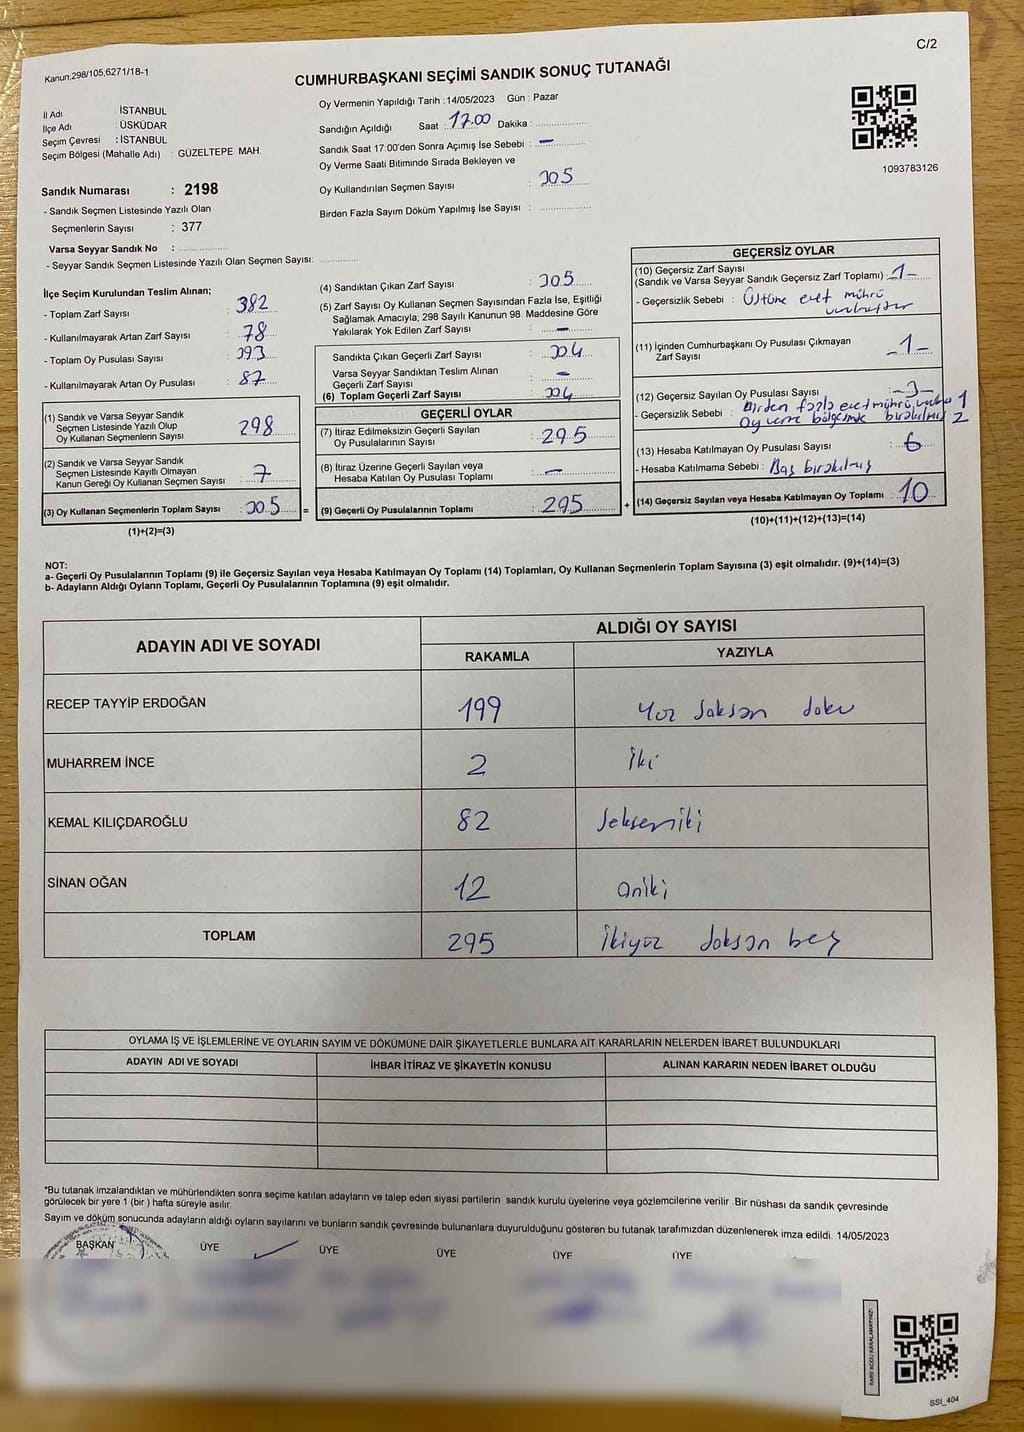 C/2
Kanun;298/105;6271/18-1
CUMHURBAŞKANI SEÇİMİ SANDIK SONUÇ TUTANAĞI
İl Adı : İSTANBUL
İlçe Adı : ÜSKÜDAR
Seçim Çevresi : İSTANBUL
Seçim Bölgesi (Mahalle Adı) : GÜZELTEPE MAH.
Sandık Numarası : 2198
- Sandık Seçmen Listesinde Yazılı Olan
Seçmenlerin Sayısı : 377
Varsa Seyyar Sandık No :
- Seyyar Sandık Seçmen Listesinde Yazılı Olan Seçmen Sayısı:
Oy Vermenin Yapıldığı Tarih :14/05/2023 Gün : Pazar
Sandığın Açıldığı Saat : 17.00 Dakika :
Sandık Saat 17:00'den Sonra Açımış İse Sebebi : —
Oy Verme Saati Bitiminde Sırada Bekleyen ve
Oy Kullandırılan Seçmen Sayısı : 305
Birden Fazla Sayım Döküm Yapılmış İse Sayısı :
1093783126
İlçe Seçim Kurulundan Teslim Alınan;
- Toplam Zarf Sayısı : 382
- Kullanılmayarak Artan Zarf Sayısı : 78
- Toplam Oy Pusulası Sayısı : 393
- Kullanılmayarak Artan Oy Pusulası : 87
(1) Sandık ve Varsa Seyyar Sandık
Seçmen Listesinde Yazılı Olup
Oy Kullanan Seçmenlerin Sayısı : 298
(2) Sandık ve Varsa Seyyar Sandık
Seçmen Listesinde Kayıtlı Olmayan
Kanun Gereği Oy Kullanan Seçmen Sayısı : 7
(3) Oy Kullanan Seçmenlerin Toplam Sayısı : 305 =
(1)+(2)=(3)
(4) Sandıktan Çıkan Zarf Sayısı : 305
(5) Zarf Sayısı Oy Kullanan Seçmen Sayısından Fazla İse, Eşitliği
Sağlamak Amacıyla; 298 Sayılı Kanunun 98. Maddesine Göre
Yakılarak Yok Edilen Zarf Sayısı : —
Sandıkta Çıkan Geçerli Zarf Sayısı : 304
Varsa Seyyar Sandıktan Teslim Alınan
Geçerli Zarf Sayısı : —
(6) Toplam Geçerli Zarf Sayısı : 304
GEÇERLİ OYLAR
(7) İtiraz Edilmeksizin Geçerli Sayılan
Oy Pusulalarının Sayısı : 295
(8) İtiraz Üzerine Geçerli Sayılan veya
Hesaba Katılan Oy Pusulası Toplamı : —
(9) Geçerli Oy Pusulalarının Toplamı : 295 +
GEÇERSİZ OYLAR
(10) Geçersiz Zarf Sayısı
(Sandık ve Varsa Seyyar Sandık Geçersiz Zarf Toplamı) : -1-
- Geçersizlik Sebebi : Üstüne evet mührü
(11) İçinden Cumhurbaşkanı Oy Pusulası Çıkmayan
Zarf Sayısı : -1-
(12) Geçersiz Sayılan Oy Pusulası Sayısı : -3-
- Geçersizlik Sebebi : Birden fazla evet mührü 1
Oy verme bölgesinde bırakılmış 2
(13) Hesaba Katılmayan Oy Pusulası Sayısı : 6
- Hesaba Katılmama Sebebi : Baş bırakılmış
(14) Geçersiz Sayılan veya Hesaba Katılmayan Oy Toplamı : 10
(10)+(11)+(12)+(13)=(14)
NOT:
a- Geçerli Oy Pusulalarının Toplamı (9) ile Geçersiz Sayılan veya Hesaba Katılmayan Oy Toplamı (14) Toplamları, Oy Kullanan Seçmenlerin Toplam Sayısına (3) eşit olmalıdır. (9)+(14)=(3)
b- Adayların Aldığı Oyların Toplamı, Geçerli Oy Pusulalarının Toplamına (9) eşit olmalıdır.
ADAYIN ADI VE SOYADI
ALDIĞI OY SAYISI
RAKAMLA YAZIYLA
RECEP TAYYİP ERDOĞAN 199 Yüz doksan doku
MUHARREM İNCE 2 İki
KEMAL KILIÇDAROĞLU 82 Sekseniki
SİNAN OĞAN 12 oniki
TOPLAM 295 İkiyüz doksan beş
OYLAMA İŞ VE İŞLEMLERİNE VE OYLARIN SAYIM VE DÖKÜMÜNE DAİR ŞİKAYETLERLE BUNLARA AİT KARARLARIN NELERDEN İBARET BULUNDUKLARI
ADAYIN ADI VE SOYADI İHBAR İTİRAZ VE ŞİKAYETİN KONUSU ALINAN KARARIN NEDEN İBARET OLDUĞU
*Bu tutanak imzalandıktan ve mühürlendikten sonra seçime katılan adayların ve talep eden siyasi partilerin sandık kurulu üyelerine veya gözlemcilerine verilir. Bir nüshası da sandık çevresinde
görülecek bir yere 1 (bir ) hafta süreyle asılır.
Sayım ve döküm sonucunda adayların aldığı oyların sayılarını ve bunların sandık çevresinde bulunanlara duyurulduğunu gösteren bu tutanak tarafımızdan düzenlenerek imza edildi. 14/05/2023
BAŞKAN ÜYE ÜYE ÜYE ÜYE ÜYE
SSI_404